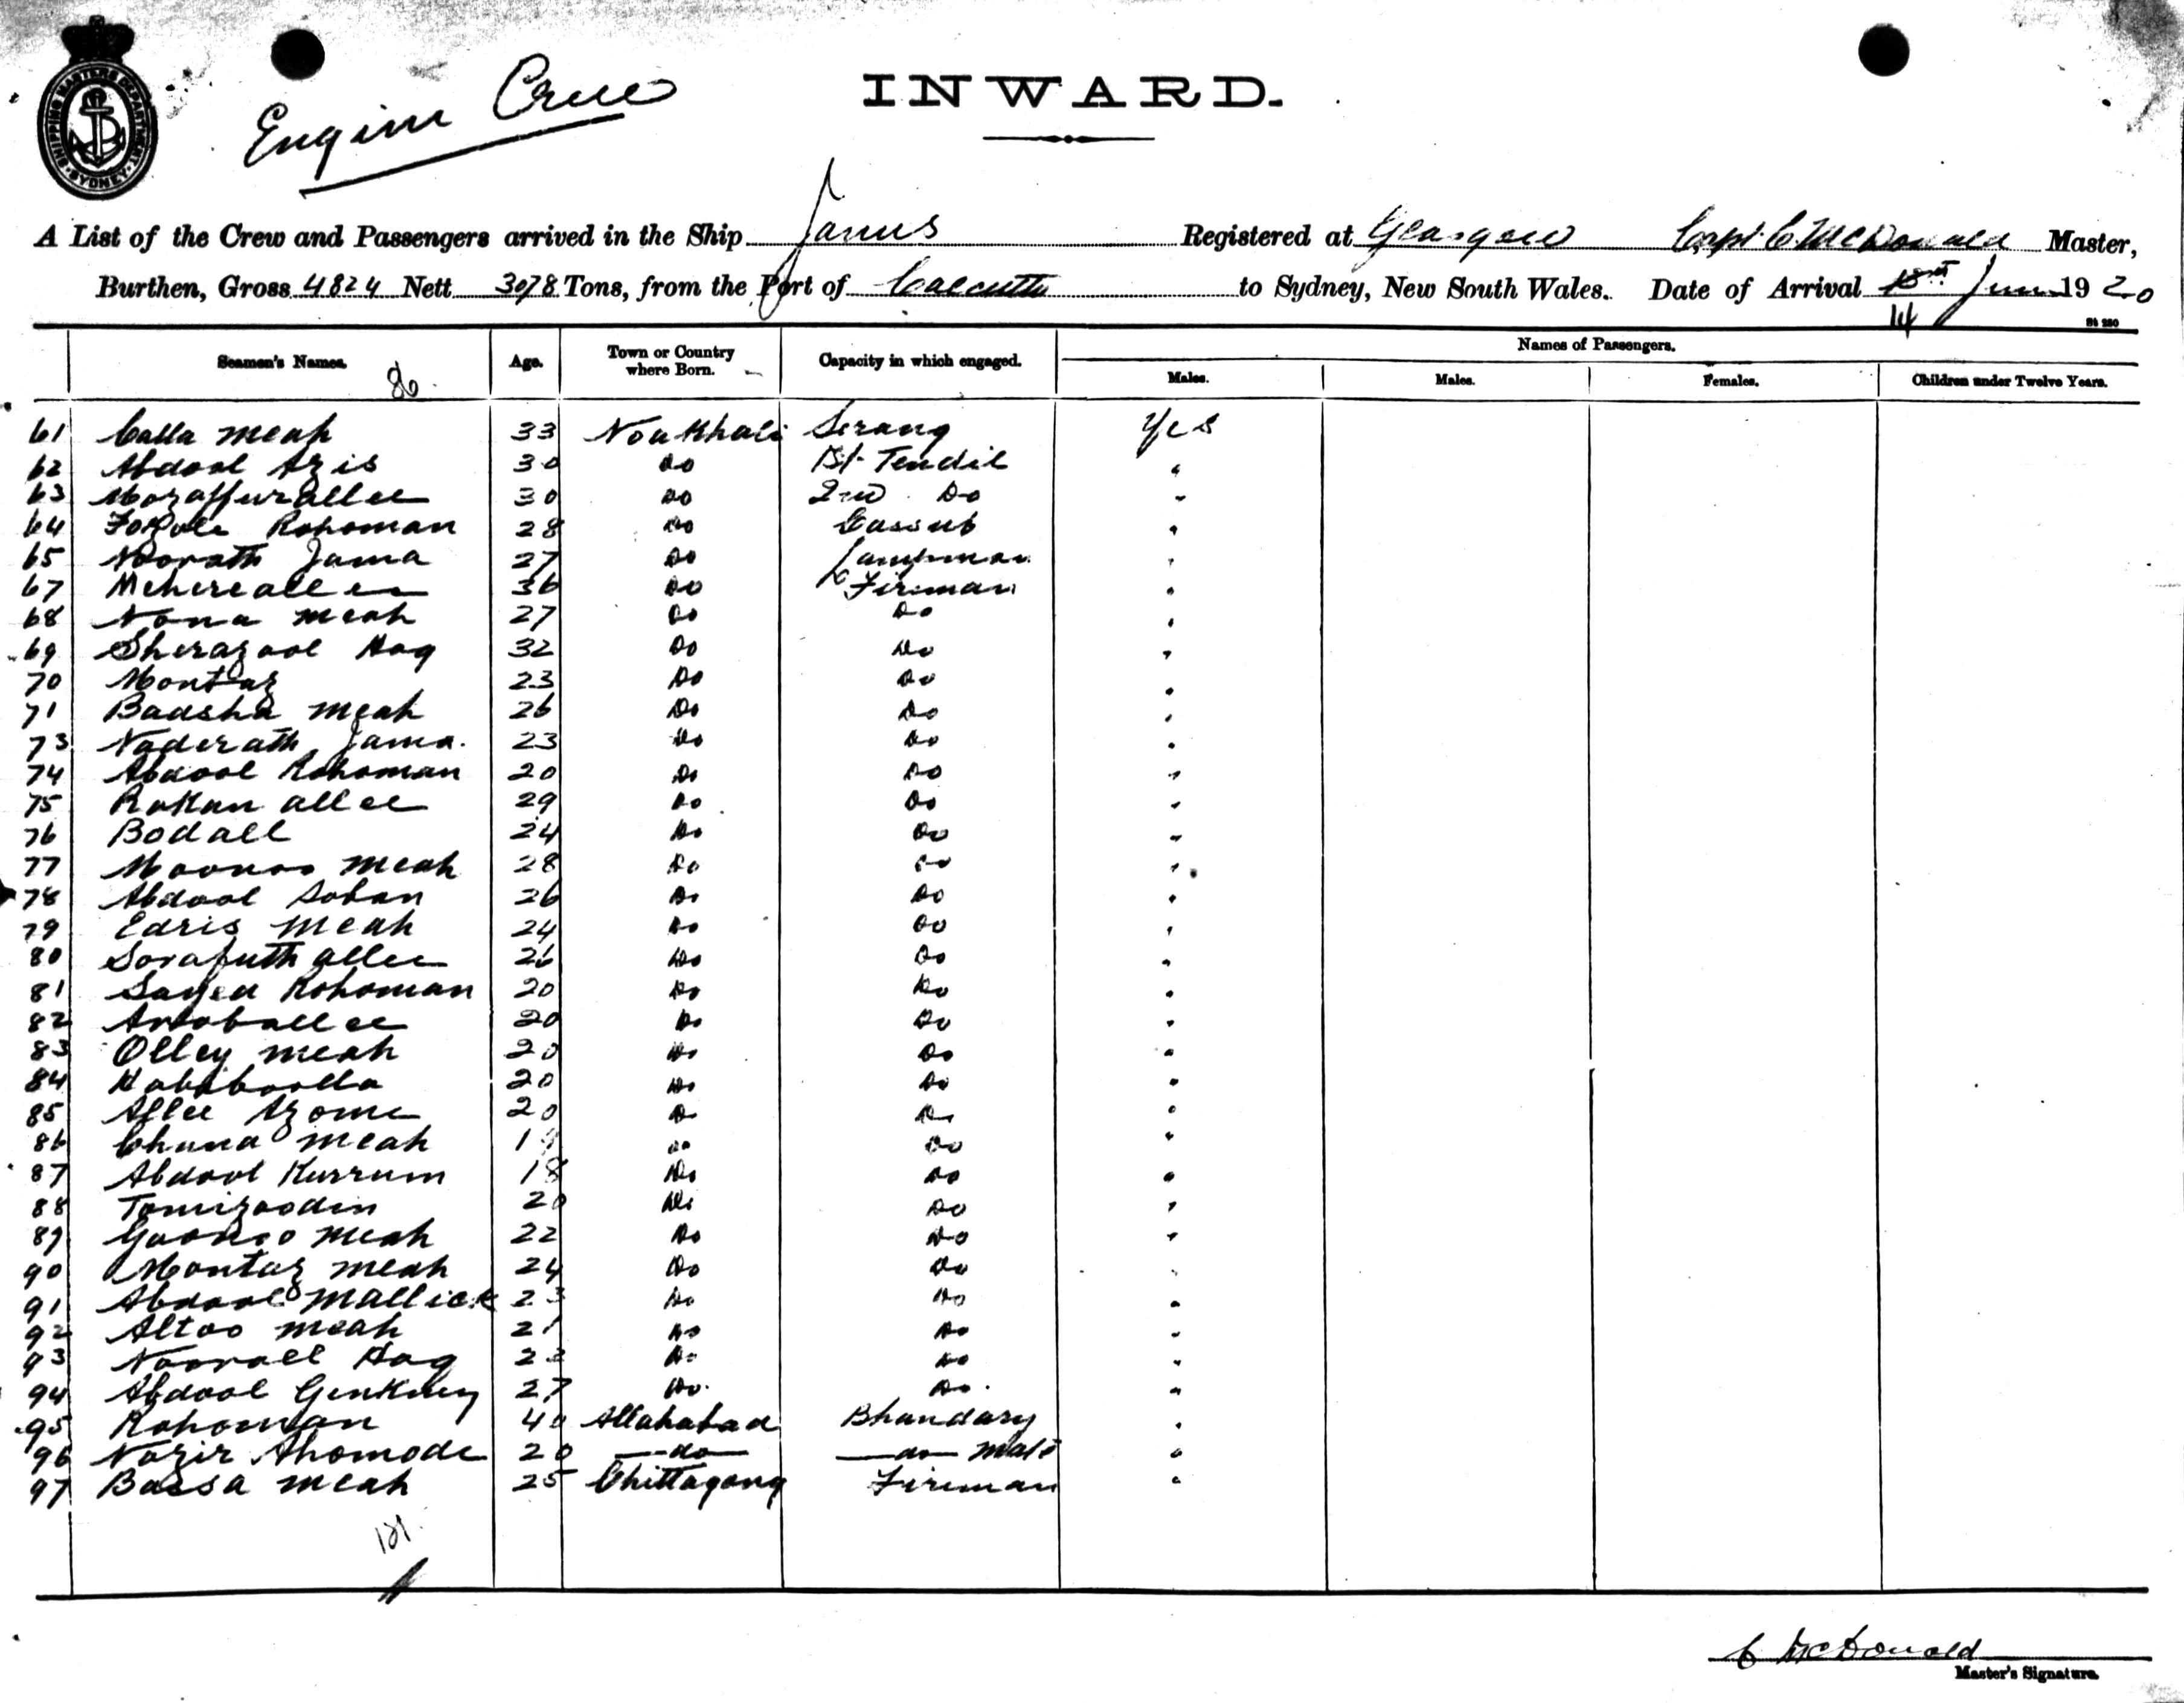 SHIPPING MASTERS DEPARTMENT SYDNEY
Engine Crew
INWARD.
A List of the Crew and Passengers arrived in the Ship Janus Registered at Glasgow Capt. C. McDonald Master,
Burthen, Gross 4824 Nett 3078 Tons, from the Port of Calcutta to Sydney, New South Wales. Date of Arrival June 1920
14
St 250
Seamen's Names. Age. Town or Country where Born. Capacity in which engaged. Names of Passengers.
86. Males. Males. Females. Children under Twelve Years.
61 Calla meah 33 Noakhali Serang Yes
62 Abdool Azis 30 Do 1st Tendil "
63 Mozaffurallee 30 Do 2nd Do "
64 Rohoman 28 Do Cassub "
65 Noorath Jama 27 Do Lampman "
67 Meherealle 36 Do Fireman "
68 Nona meah 27 Do Do "
69 Sherazool Hog 32 Do Do "
70 Montaz 23 Do Do "
71 Badsha meah 26 Do Do "
73 Naderath Jama. 23 Do Do "
74 Abdool Rohoman 20 Do Do "
75 Rokan allee 29 Do Do "
76 Bodall 24 Do Do "
77 Moonoo meah 28 Do Do "
78 Abdool Soban 26 Do Do "
79 Edris meah 24 Do Do "
80 Sorafuth allee 26 Do Do "
81 Sayed Rohoman 20 Do Do "
82 20 Do Do "
83 Olley meah 20 Do Do "
84 Habiboolla 20 Do Do "
85 Allee Azome 20 Do Do "
86 Chuna meah Do Do "
87 Abdool Kurrum 18 Do Do "
88 Tomizoodin 20 Do Do "
89 meah 22 Do Do "
90 Montaz meah 24 Do Do "
91 Abdool Mallick 23 Do Do "
92 Altoo meah 21 Do Do "
93 Nooroll Hog Do Do "
94 Abdool 27 Do. Do. "
95 Rohoman 40 Allahabad Bhandary "
96 Nozir Ahomode 20 —do— —do— mate "
97 Bassa meah 25 Chittagong Fireman "
C McDonald
Master's Signature.